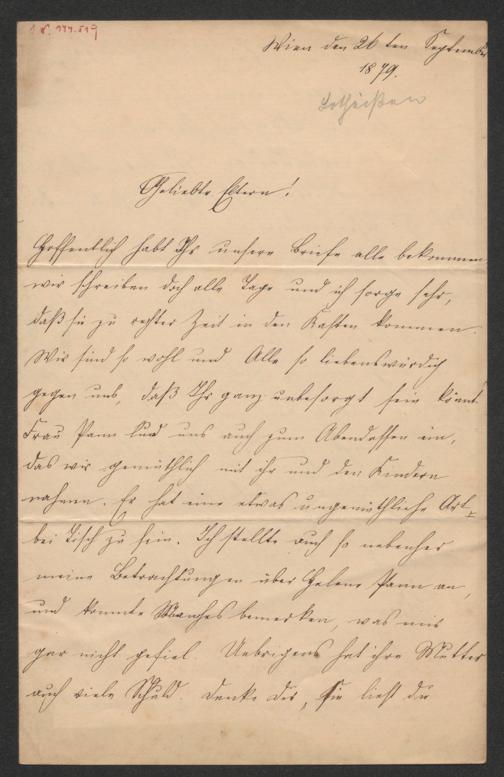 I. N. 144.519
Wien den 26ten September
1879.
Lotheißen
Geliebte Eltern!
Hoffentlich habt Ihr unsere Briefe alle bekommen
wir schreiben doch alle Tage und ich sorge sehr,
daß sie zu rechter Zeit in den Kasten kommen.
Wir sind so wohl und Alle so liebenswürdig
gegen uns, daß Ihr ganz unbesorgt sein könnt.
Frau Pann lud uns auch zum Abendessen ein,
das wir gemüthlich mit ihr und den Kindern
nahmen. Er hat eine etwas ungemüthliche Art
bei Tisch zu sein. Ich stellte auch so nebenher
meine Betrachtungen über Helene Pann an,
und konnte Manches bemerken, was mir
gar nicht gefiel. Uebrigens hat ihre Mutter
auch viele Schuld. Denke dir, sie liest die